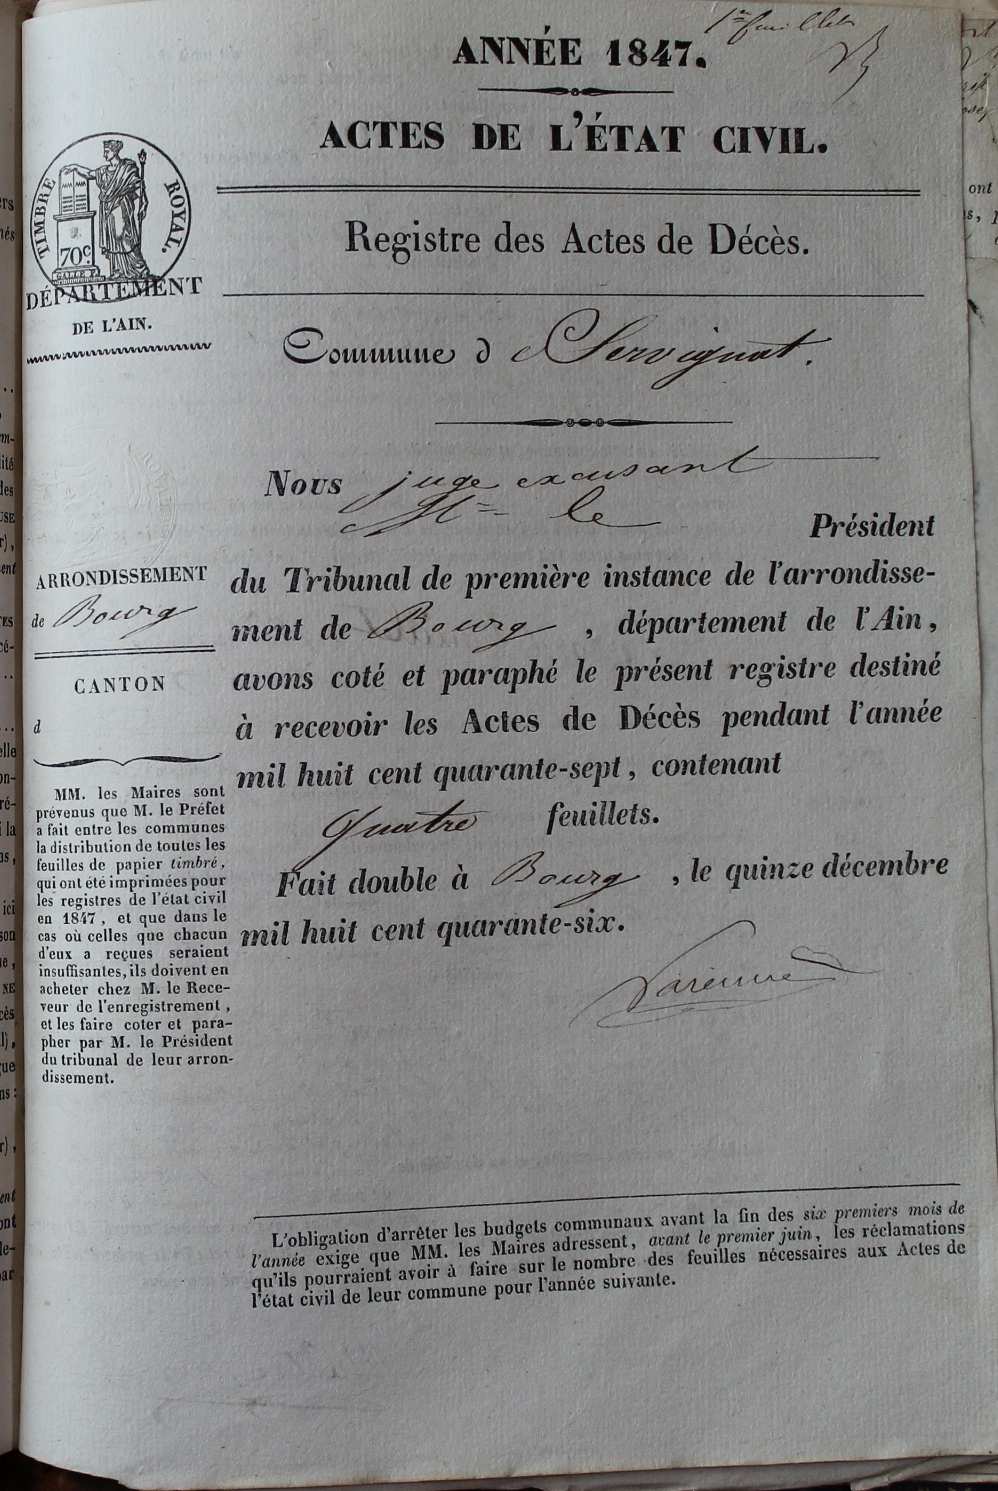 1er feuillet
ANNÉE 1847.
ACTES DE L'ÉTAT CIVIL.
TIMBRE ROYAL.
70c
DÉPARTEMENT
DE L'AIN.
Registre des Actes de Décès.
Commune d Servignat.
ARRONDISSEMENT
de Bourg
CANTON
d
MM. les Maires sont
prévenus que M. le Préfet
a fait entre les communes
la distribution de toutes les
feuilles de papier timbré,
qui ont été imprimées pour
les registres de l'état civil
en 1847, et que dans le
cas où celles que chacun
d'eux a reçues seraient
insuffisantes, ils doivent en
acheter chez M. le Rece-
veur de l'enregistrement,
et les faire coter et para-
pher par M. le Président
du tribunal de leur arron-
dissement.
Nous juge excusant
Mr le
Président
du Tribunal de première instance de l'arrondisse-
ment de Bourg, département de l'Ain,
avons coté et paraphé le présent registre destiné
à recevoir les Actes de Décès pendant l'année
mil huit cent quarante-sept, contenant
Quatre feuillets.
Fait double à Bourg, le quinze décembre
mil huit cent quarante-six.
L'obligation d'arrêter les budgets communaux avant la fin des six premiers mois de
l'année exige que MM. les Maires adressent, avant le premier juin, les réclamations
qu'ils pourraient avoir à faire sur le nombre des feuilles nécessaires aux Actes de
l'état civil de leur commune pour l'année suivante.